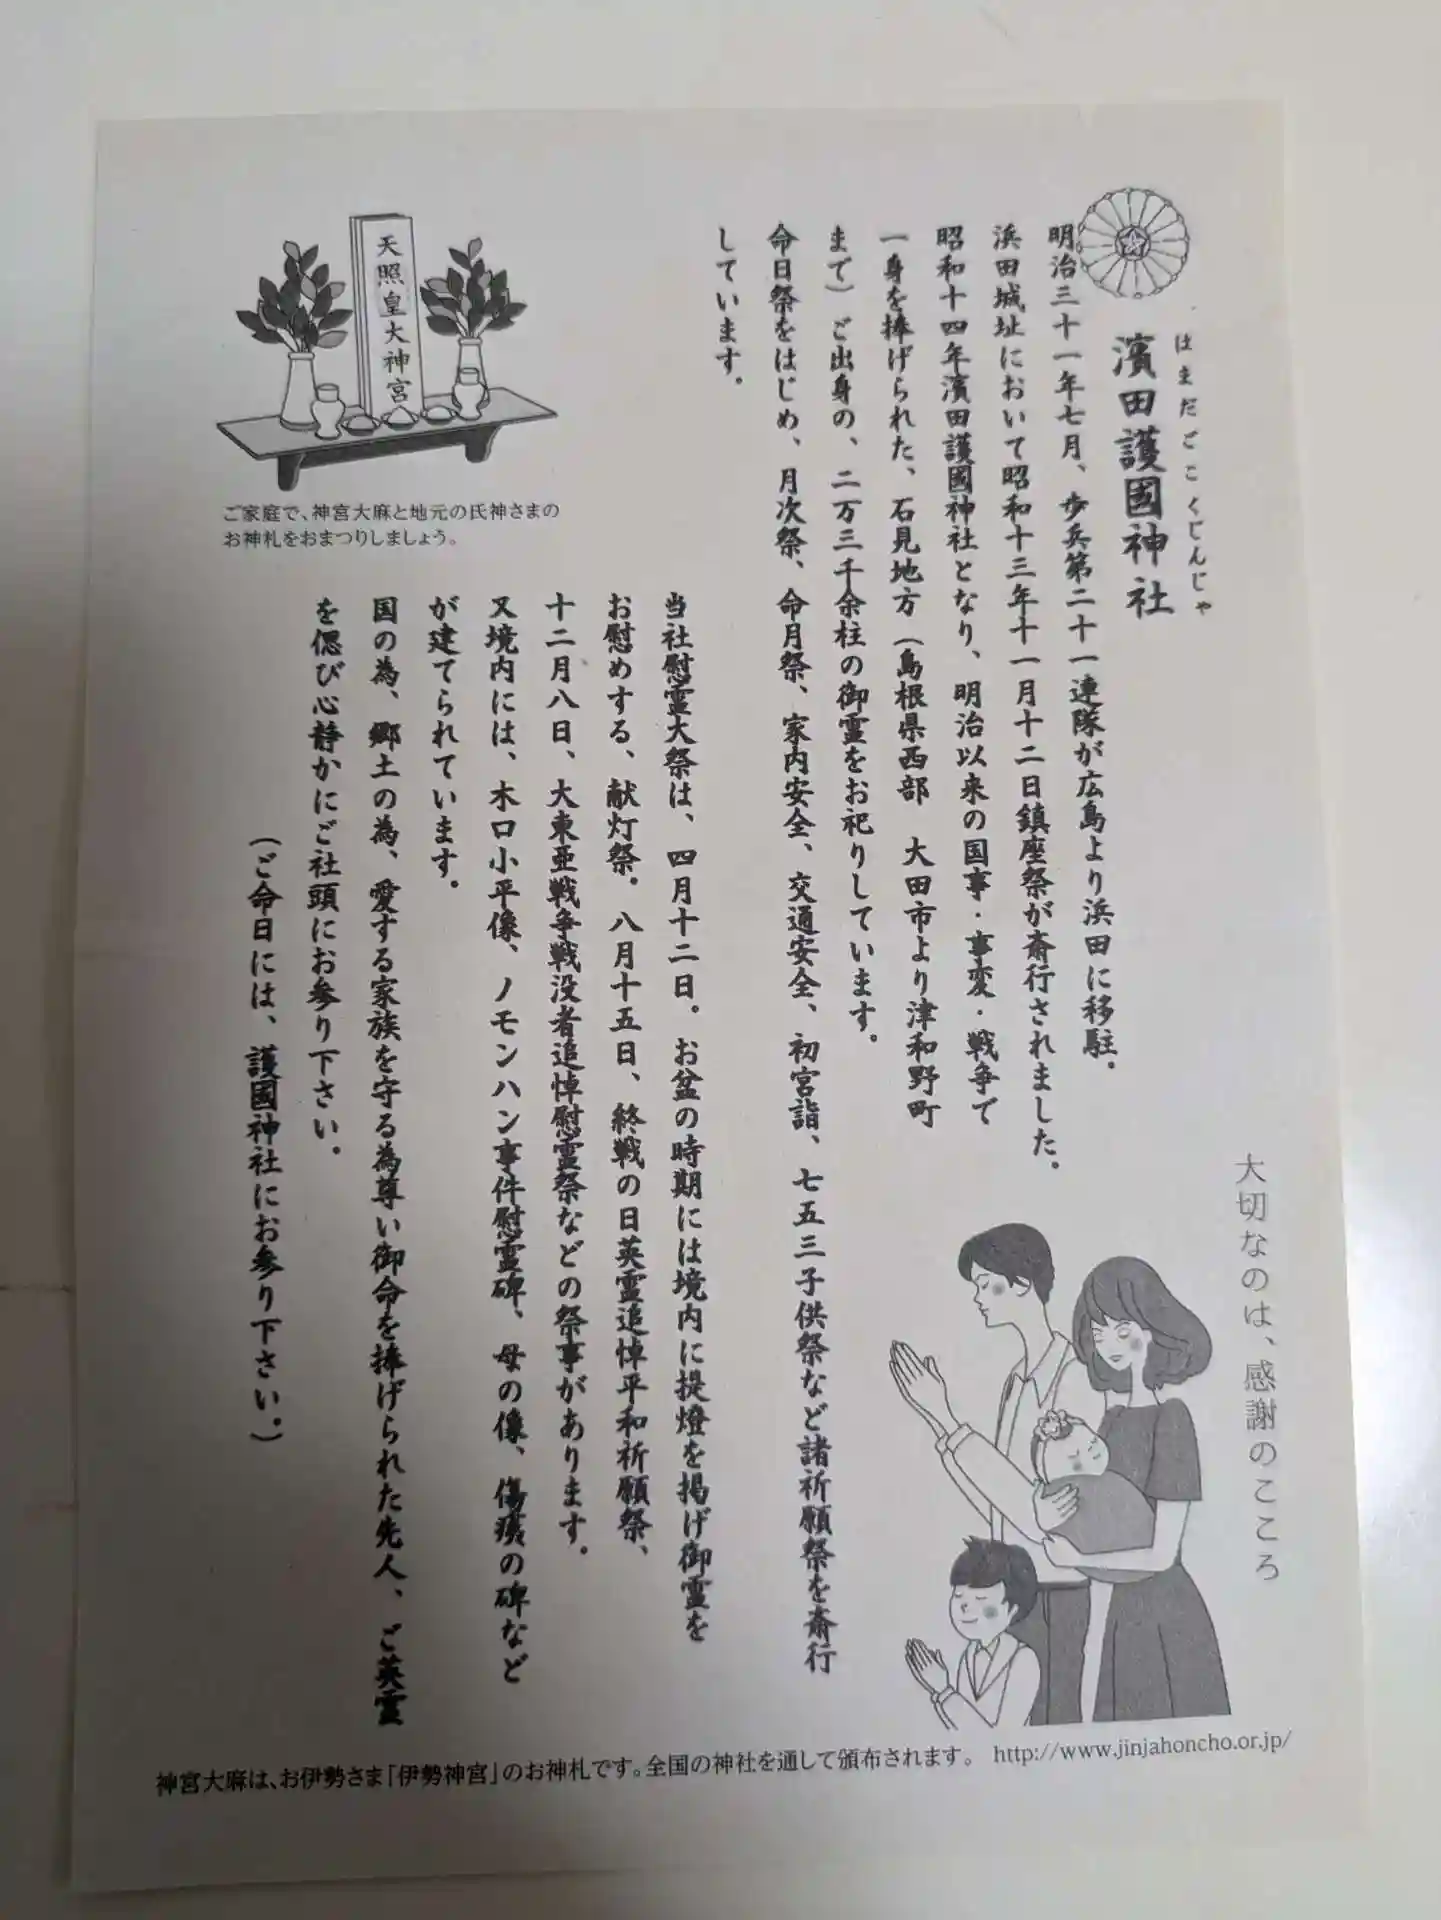 はまだごこくじんじゃ
濱田護國神社
明治三十一年七月、歩兵第二十一連隊が広島より浜田に移駐。
浜田城址において昭和十三年十一月十二日鎮座祭が斎行されました。
昭和十四年濱田護國神社となり、明治以来の国事・事変・戦争で
一身を捧げられた、石見地方（島根県西部　大田市より津和野町
まで）ご出身の、二万三千余柱の御霊をお祀りしています。
命日祭をはじめ、月次祭、命月祭、家内安全、交通安全、初宮詣、七五三子供祭など諸祈願祭を斎行
しています。
天照皇大神宮
ご家庭で、神宮大麻と地元の氏神さまの
お神札をおまつりしましょう。
当社慰霊大祭は、四月十二日。お盆の時期には境内に提燈を掲げ御霊を
お慰めする、献灯祭。八月十五日、終戦の日英霊追悼平和祈願祭、
十二月八日、大東亜戦争戦没者追悼慰霊祭などの祭事があります。
又境内には、木口小平像、ノモンハン事件慰霊碑、母の像、傷痍の碑など
が建てられています。
国の為、郷土の為、愛する家族を守る為尊い御命を捧げられた先人、ご英霊
を偲び心静かにご社頭にお参り下さい。
（ご命日には、護國神社にお参り下さい。）
大切なのは、感謝のこころ
神宮大麻は、お伊勢さま「伊勢神宮」のお神札です。全国の神社を通して頒布されます。 http://www.jinjahoncho.or.jp/